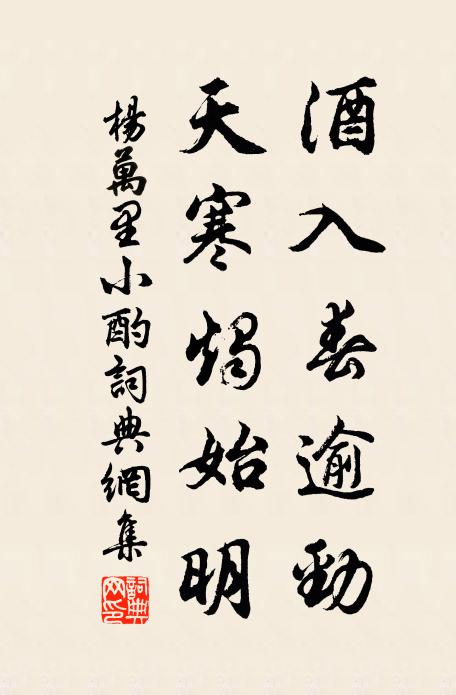 酒入春逾勁
天寒燭始明
楊萬里小酌詞典網集
詞典網印